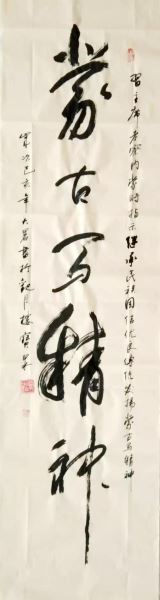 习主席考察内蒙时指示继承民族团结优良传统发扬蒙古马精神
蒙古马精神
岁次己亥年大暑书于观月楼